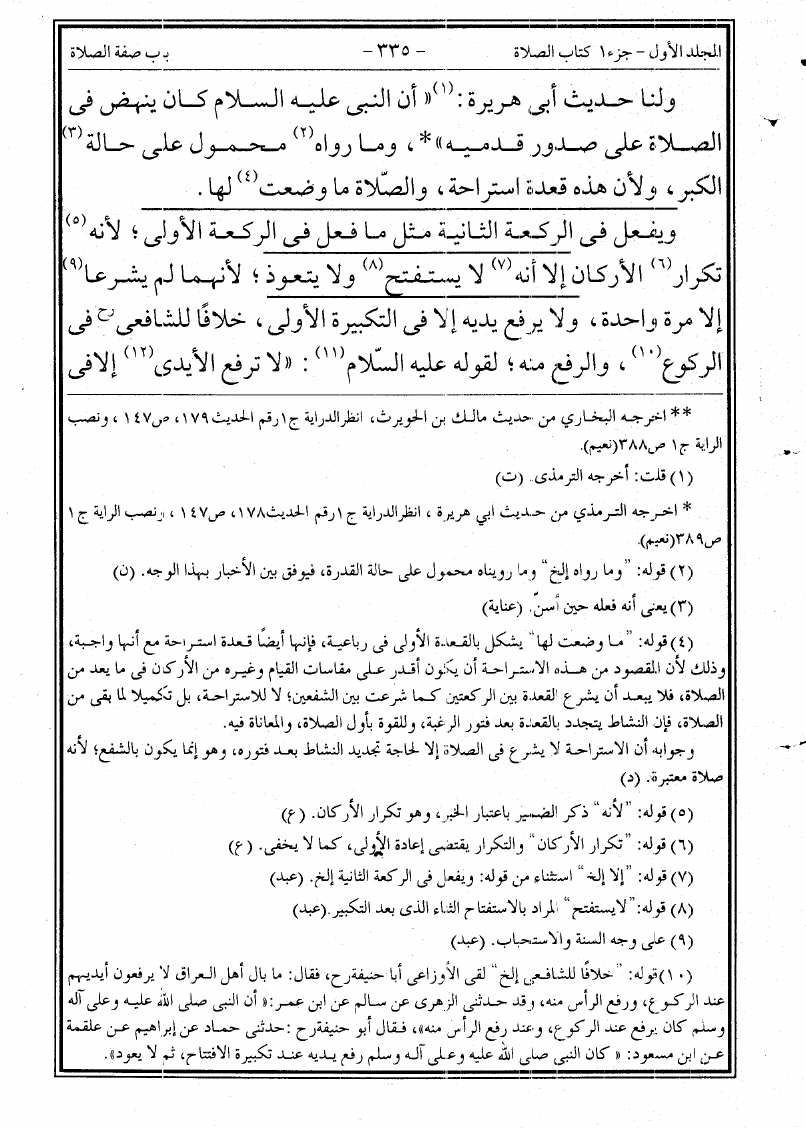 المجلد الأول – جزء ١ كتاب الصلاة – ٣٣٥ – باب صفة الصلاة
ولنا حديث أبى هريرة :(١)« أن النبى عليه السلام كان ينهض فى
الصلاة على صدور قدميه»* ، وما رواه(٢) محمول على حالة(٣)
الكبر ، ولأن هذه قعدة استراحة ، والصّلاة ما وضعت(٤) لها .
ويفعل فى الركعة الثانية مثل ما فعل فى الركعة الأولى ؛ لأنه(٥)
تكرار(٦) الأركان إلا أنه(٧) لا يستفتح(٨) ولا يتعوذ ؛ لأنهما لم يشرعا(٩)
إلا مرة واحدة ، ولا يرفع يديه إلا فى التكبيرة الأولى ، خلافًا للشافعى رح فى
الركوع(١٠) ، والرفع منه ؛ لقوله عليه السّلام(١١) : «لا ترفع الأيدى(١٢) إلا فى
** اخرجه البخاري من حديث مالك بن الحويرث، انظر الدراية ج١ رقم الحديث ١٧٩، ص١٤٧ ، ونصب
الراية ج١ ص٣٨٨ (نعيم).
(١) قلت: أخرجه الترمذى. (ت)
* اخرجه الترمذي من حديث ابي هريرة ، انظر الدراية ج١ رقم الحديث ١٧٨، ص١٤٧ ، ونصب الراية ج١
ص٣٨٩ (نعيم).
(٢) قوله: ”وما رواه إلخ“ وما رويناه محمول على حالة القدرة، فيوفق بين الأخبار بهذا الوجه. (ن)
(٣) يعنى أنه فعله حين أسنّ. (عناية)
(٤) قوله: ”ما وضعت لها“ يشكل بالقعدة الأولى فى رباعية، فإنها أيضًا قعدة استراحة مع أنها واجبة،
وذلك لأن المقصود من هذه الاستراحة أن يكون أقدر على مقاسات القيام وغيره من الأركان فى ما يعد من
الصلاة، فلا يبعد أن يشرع القعدة بين الركعتين كما شرعت بين الشفعين؛ لا للاستراحة، بل تكميلا لما بقى من
الصلاة، فإن النشاط يتجدد بالقعدة بعد فتور الرغبة، وللقوة بأول الصلاة، والمعاناة فيه.
وجوابه أن الاستراحة لا يشرع فى الصلاة إلا لحاجة تجديد النشاط بعد فتوره، وهو إنما يكون بالشفع؛ لأنه
صلاة معتبرة. (د)
(٥) قوله: ”لأنه“ ذكر الضمير باعتبار الخبر، وهو تكرار الأركان. (ع)
(٦) قوله: ”تكرار الأركان“ والتكرار يقتضى إعادة الأولى، كما لا يخفى. (ع)
(٧) قوله: ”إلا إلخ“ استثناء من قوله: ويفعل فى الركعة الثانية إلخ. (عبد)
(٨) قوله: ”لا يستفتح“ المراد بالاستفتاح الثناء الذى بعد التكبير. (عبد)
(٩) على وجه السنة والاستحباب. (عبد)
(١٠) قوله: ”خلافًا للشافعى إلخ“ لقى الأوزاعى أبا حنيفة رح، فقال: ما بال أهل العراق لا يرفعون أيديهم
عند الركوع، ورفع الرأس منه، وقد حدثنى الزهرى عن سالم عن ابن عمر: «أن النبى صلى الله عليه وعلى آله
وسلم كان يرفع عند الركوع، وعند رفع الرأس منه»، فقال أبو حنيفة رح : حدثنى حماد عن إبراهيم عن علقمة
عن ابن مسعود: « كان النبى صلى الله عليه وعلى آله وسلم رفع يديه عند تكبيرة الافتتاح، ثم لا يعود».